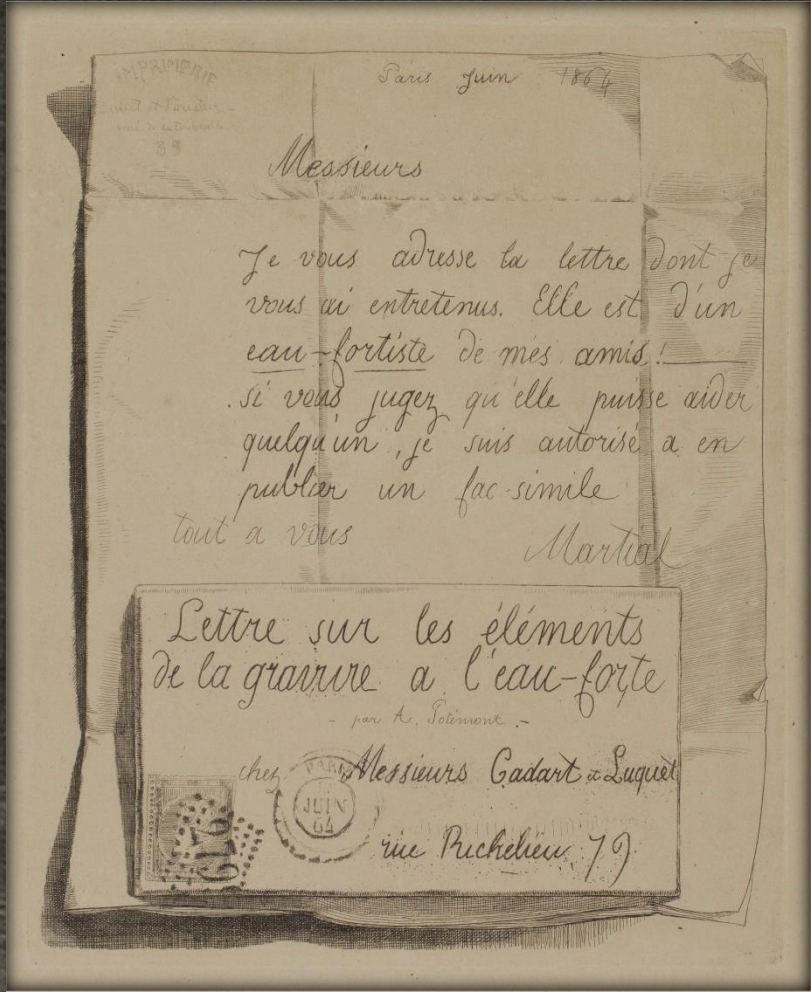 IMPRIMERIE
Paris Juin 1864
Messieurs
Je vous adresse la lettre dont je
vous ai entretenus. Elle est d'un
eau-fortiste de mes amis !
si vous jugez qu'elle puisse aider
quelqu'un, je suis autorisé a en
publier un fac-simile
tout a vous
Martial
Lettre sur les éléments
de la gravure a l'eau-forte
- par A. Potémont -
chez Messieurs Cadart et Luquet
PARIS
JUIN
64
rue Richelieu 79